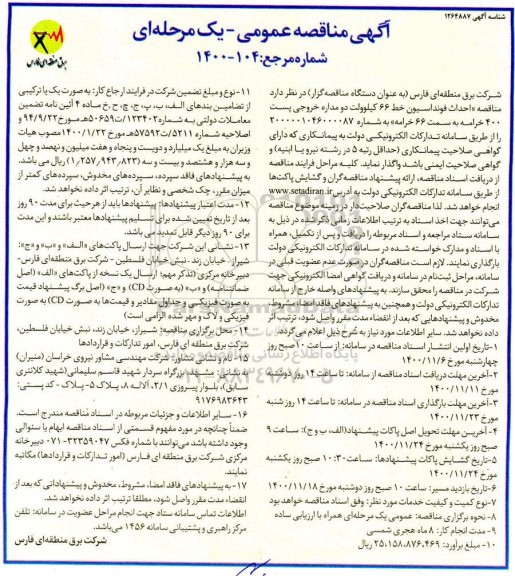 شناسه آگهی ۱۲۶۴۸۸۷
آگهی مناقصه عمومی - یک مرحله‌ای
شماره مرجع: ۱۰۴-۱۴۰۰
برق منطقه‌ای فارس
شرکت برق منطقه‌ای فارس (به عنوان دستگاه مناقصه‌گزار) در نظر دارد
مناقصه «احداث فونداسیون خط ۶۶ کیلوولت دو مداره خروجی پست
۴۰۰ خرامه به سمت ۶۶ خرامه» به شماره
را از طریق سامانه تدارکات الکترونیکی دولت به پیمانکاری که دارای
گواهی صلاحیت پیمانکاری (حداقل رتبه ۵ در رشته نیرو یا ابنیه) و
گواهی صلاحیت ایمنی باشد واگذار نماید. کلیه مراحل فرایند مناقصه
از دریافت اسناد مناقصه، ارائه پیشنهاد مناقصه‌گران و گشایش پاکت‌ها
از طریق سامانه تدارکات الکترونیکی دولت به آدرس www.setadiran.ir
انجام خواهد شد. لذا مناقصه‌گران صلاحیت‌دار در زمینه موضوع مناقصه
می‌توانند جهت اخذ اسناد به ترتیب اطلاعات زمانی ذکر شده در ذیل به
سامانه ستاد مراجعه و اسناد مربوطه را دریافت و پس از تکمیل، همراه
با اسناد و مدارک خواسته شده در سامانه تدارکات الکترونیکی دولت
بارگذاری نمایند. لازم است مناقصه‌گران در صورت عدم عضویت قبلی در
سامانه، مراحل ثبت‌نام در سامانه و دریافت گواهی امضا الکترونیکی جهت
شرکت در مناقصه را محقق سازند. به پیشنهادهای واصله خارج از سامانه
تدارکات الکترونیکی دولت و همچنین به پیشنهادهای فاقد امضا، مشروط،
مخدوش و پیشنهادهایی که بعد از انقضاء مدت مقرر واصل شود، ترتیب اثر
داده نخواهد شد. سایر اطلاعات مورد نیاز به شرح ذیل اعلام می‌گردد.
۱-تاریخ اولین انتشار اسناد مناقصه در سامانه: از ساعت ۱۰ صبح روز
چهارشنبه مورخ ۱۴۰۰/۱۱/۶
۲-آخرین مهلت دریافت اسناد مناقصه از سامانه: تا ساعت ۱۴ روز دوشنبه
مورخ ۱۴۰۰/۱۱/۱۱
۳-آخرین مهلت بارگذاری اسناد مناقصه در سامانه: تا ساعت ۱۴ روز شنبه
مورخ ۱۴۰۰/۱۱/۲۳
۴- آخرین مهلت تحویل اصل پاکات پیشنهاد(الف، ب و ج): ساعت ۹
صبح روز یکشنبه مورخ ۱۴۰۰/۱۱/۲۴
۵-تاریخ گشایش پاکات پیشنهادها: ساعت ۱۰:۳۰ صبح روز یکشنبه
مورخ ۱۴۰۰/۱۱/۲۴
۶-تاریخ بازدید مسیر: ساعت ۱۰ صبح روز دوشنبه مورخ ۱۴۰۰/۱۱/۱۸
۷-نوع کمیت و کیفیت خدمات مورد نظر: وفق اسناد مناقصه خواهد بود
۸- نحوه برگزاری مناقصه: عمومی یک مرحله‌ای همراه با ارزیابی ساده
۹- مدت انجام کار: ۸ ماه هجری شمسی
۱۰- مبلغ برآورد: ۲۵،۱۵۸،۸۷۶،۴۶۹ ریال
۱۱-نوع و مبلغ تضمین شرکت در فرایند ارجاع کار: به صورت یک یا ترکیبی
از تضامین بندهای الف، ب، پ، ج، چ، ح، خ ماده ۴ آئین نامه تضمین
معاملات دولتی به شماره ۱۲۳۴۰۲/ت۵۰۶۵۹هـ مورخ ۹۴/۹/۲۲ و
اصلاحیه شماره ۵۲۱۱/ت۵۷۵۹۲هـ مورخ ۱۴۰۰/۱/۲۲ مصوب هیات
وزیران به مبلغ یک میلیارد و دویست و پنجاه و هفت میلیون و نهصد و چهل
و سه هزار و هشتصد و بیست و سه (۱،۲۵۷،۹۴۳،۸۲۳) ریال می باشد.
به پیشنهادهای فاقد سپرده، سپرده‌های مخدوش، سپرده‌های کمتر از
میزان مقرر، چک شخصی و نظایر آن، ترتیب اثر داده نخواهد شد.
۱۲-مدت اعتبار پیشنهادها: پیشنهادها باید از هر حیث برای مدت ۹۰ روز
بعد از تاریخ تعیین شده برای تسلیم پیشنهادها معتبر باشند و این مدت
برای ۹۰ روز دیگر قابل تمدید می باشد.
۱۳-نشانی این شرکت جهت ارسال پاکت‌های «الف» و «ب» و «ج»:
شیراز، خیابان زند، نبش خیابان فلسطین - شرکت برق منطقه‌ای فارس-
دبیرخانه مرکزی (تذکر مهم: ارسال یک نسخه از پاکت‌های «الف» (اصل
ضمانتنامه) و «ب» (به صورت CD) و «ج» (اصل برگ پیشنهاد قیمت
به صورت فیزیکی و جداول مقادیر و قیمت‌ها به صورت CD) به صورت
فیزیکی و لاک و مهر شده الزامی است)
۱۴- محل برگزاری مناقصه: شیراز، خیابان زند، نبش خیابان فلسطین،
شرکت برق منطقه ای فارس، امور تدارکات و قراردادها
۱۵- نام و نشانی مشاور: شرکت مهندسی مشاور نیروی خراسان (منیران)
به نشانی: مشهد، بزرگراه سردار شهید قاسم سلیمانی (شهید کلانتری
سابق)، بلوار پیروزی ۲/۱، آلاله ۸، پلاک ۵- پلاک - کد پستی:
۹۱۷۶۹۸۳۶۴۳
۱۶- سایر اطلاعات و جزئیات مربوطه در اسناد مناقصه مندرج است.
ضمناً چنانچه در مورد مفهوم قسمتی از اسناد مناقصه ابهام یا سئوالی
وجود داشته باشد می توانند با شماره فکس ۳۲۳۵۹۰۴۷-۰۷۱ دبیرخانه
مرکزی شرکت برق منطقه ای فارس (امور تدارکات و قراردادها) مکاتبه
نمایند.
۱۷- به پیشنهادهای فاقد امضا، مشروط، مخدوش و پیشنهاداتی که بعد از
انقضاء مدت مقرر واصل شود، مطلقا ترتیب اثر داده نخواهد شد.
اطلاعات تماس سامانه ستاد جهت انجام مراحل عضویت در سامانه: تلفن
مرکز راهبری و پشتیبانی سامانه ۱۴۵۶ می‌باشد.
شرکت برق منطقه‌ای فارس